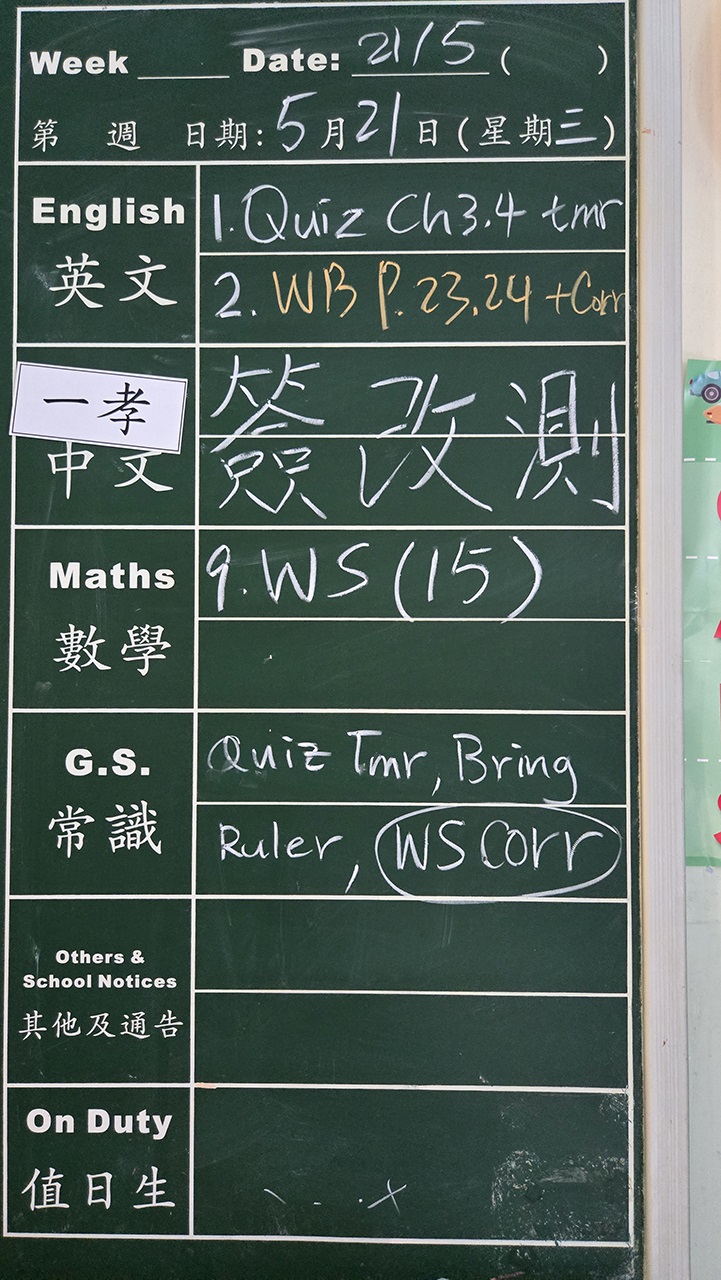 Week ______ Date: 21/5 (      )
第 週 日期: 5月21日(星期三)
English 1. Quiz Ch3.4 tmr
英文 2. WB P.23.24 +Corr
一孝
中文 簽改測
Maths 9. WS (15)
數學
G.S. Quiz Tmr, Bring
常識 Ruler, WS Corr
Others &
School Notices
其他及通告
On Duty
值日生